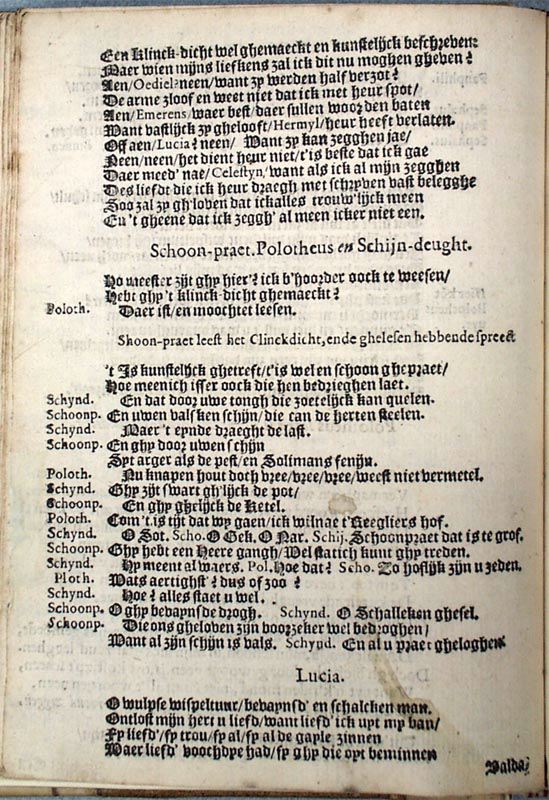 Een Klinck-dicht wel ghemaeckt en kunstelijck beschreven:
Maer wien mijns liefkens zal ick dit nu moghen gheven?
Aen/Oediel?neen/want zy werden half verzot?
De arme zloof en weet niet dat ick met heur spot/
Aen/Emerens/waer best/daer sullen woorden baten
Want vastlijck zy ghelooft/Hermyl/heur heeft verlaten.
Off aen/Lucia? neen/ Want zy kan zegghen jae/
Neen/neen/het dient heur niet/t'is beste dat ick gae
Daer meed' nae/Celestyn/want als ick al mijn zegghen
Des liefdt die ick heur draegh met schryven vast belegghe
Soo zal zy gh'loven dat ickalles trouw'lijck meen
En 't gheene dat ick zeggh' al meen icker niet een.
Schoon-praet. Polotheus en Schijn-deught.
Ho meester zijt ghy hier? ick b'hoorder oock te weesen/
Hebt ghy 't klinck-dicht ghemaeckt?
Poloth. Daer ist/en moochtet leesen.
Skoon-praet leest het Clinckdicht, ende ghelesen hebbende spreect
't Is kunstelijck ghetreft/t'is wel en schoon ghepraet/
Hoe meenich isser oock die hen bedrieghen laet.
Schynd. En dat door uwe tongh die zoetelijck kan quelen.
Schoonp. En uwen valsken schijn/die can de herten steelen.
Schynd. Maer 't eynde draeght de last.
Schoonp. En ghy door uwen schijn
Syt arger als de pest/en Solimans fenijn.
Poloth. Nu knapen hout doch vree/vree/vree/weest niet vermetel.
Schynd. Ghy zijt swart gh'lijck de pot/
Schoonp. En ghy ghelijck de Ketel.
Poloth. Com't.is tijt dat wy gaen/ick wil nae t'Reegliers hof.
Schynd. O Sot. Scho. O Gek. O Nar. Schij. Schoonpraet dat is te grof.
Schoonp. Ghy hebt een Heere gangh/Wel statich kunt ghy treden.
Schynd. Hy meent al waers. Pol. Hoe dat? Scho. Zo hoflijk zijn u zeden.
Ploth. Wats aertighst? dus of zoo?
Schynd. Hoe? alles staet u wel.
Schoonp. O ghy bevaynsde drogh. Schynd. O Schalleken ghesel.
Schoonp. Die ons gheloven zijn voorzeker wel bedroghen/
Want al zijn schijn is vals. Schynd. En al u praet gheloghen.
Lucia.
O wulpse wispeltuur/bevaynsd' en schalcken man.
Ontlost mijn hert u liefd/want liefd' ick uyt my ban/
Sy liefd'/sy trou/sy al/sy al de gayle zinnen
Maer liefd' voochdye had/sy ghy die oyt beminnen
Valda/